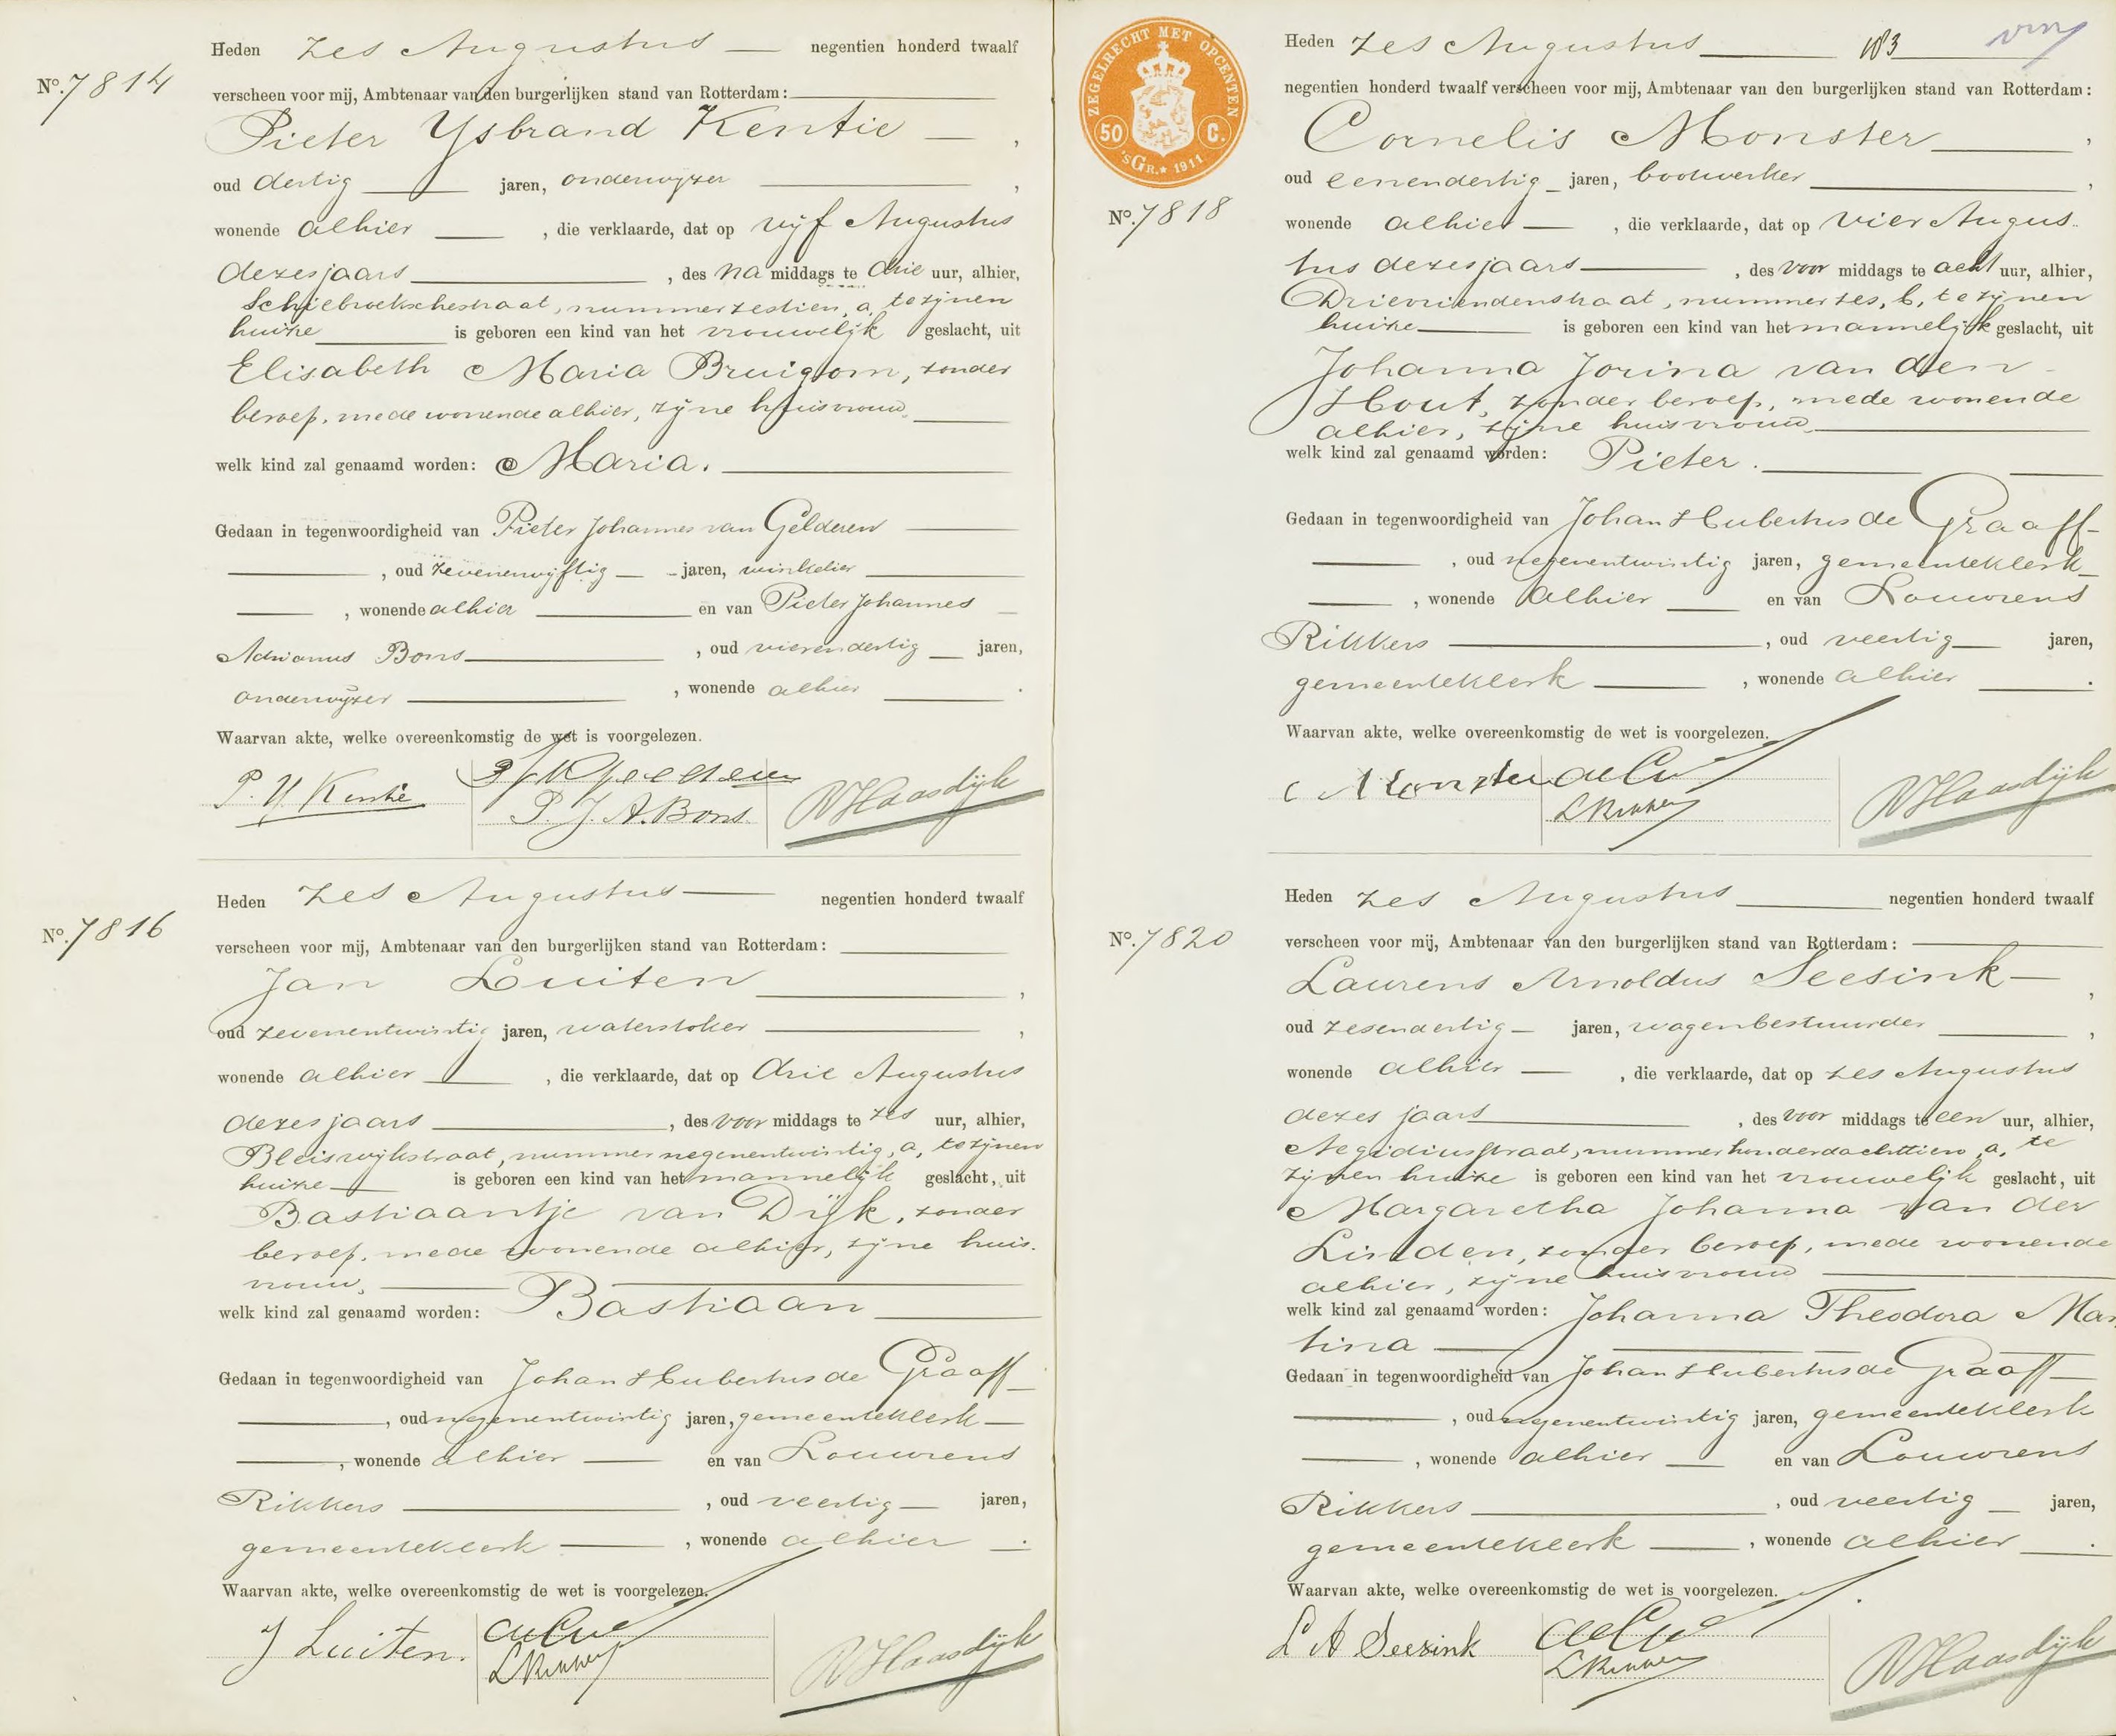 Heden zes Augustus negentien honderd twaalf
No. 7814
verscheen voor mij, Ambtenaar van den burgerlijken stand van Rotterdam:
Pieter Ysbrand Kentie,
oud dertig jaren, onderwijzer,
wonende alhier, die verklaarde, dat op vijf Augustus
dezes jaars, des na middags te drie uur, alhier,
Schiebroekschestraat, nummer zestien, a, te zijnen
huize is geboren een kind van het vrouwelijk geslacht, uit
Elisabeth Maria Bruigom, zonder
beroep, mede wonende alhier, zijne huisvrouw
welk kind zal genaamd worden: Maria.
Gedaan in tegenwoordigheid van Pieter Johannes van Gelderen
, oud zevenenvijftig jaren, winkelier
, wonende alhier en van Pieter Johannes
Adrianus Bons, oud vierendertig jaren,
onderwijzer, wonende alhier.
Waarvan akte, welke overeenkomstig de wet is voorgelezen.
P. Y. Kentie
P. J. A. Bons.
Haasdijk
Heden zes Augustus negentien honderd twaalf
No. 7816
verscheen voor mij, Ambtenaar van den burgerlijken stand van Rotterdam:
Jan Luiten,
oud zevenentwintig jaren, waterstoker,
wonende alhier, die verklaarde, dat op drie Augustus
dezes jaars, des voor middags te zes uur, alhier,
Bleiswijkstraat, nummer negenentwintig, a, te zijnen
huize is geboren een kind van het mannelijk geslacht, uit
Bastiaantje van Dijk, zonder
beroep, mede wonende alhier, zijne huis-
vrouw,
welk kind zal genaamd worden: Bastiaan
Gedaan in tegenwoordigheid van Johan Hubertus de Graaff
, oud negenentwintig jaren, gemeenteklerk
, wonende alhier en van Louwrens
Rikkers, oud veertig jaren,
gemeenteklerk, wonende alhier.
Waarvan akte, welke overeenkomstig de wet is voorgelezen.
J Luiten.
LRikkers
Haasdijk
ZEGELRECHT MET OPCENTEN
50 C.
'SGR. 1911
Heden zes Augustus 183
negentien honderd twaalf verscheen voor mij, Ambtenaar van den burgerlijken stand van Rotterdam:
Cornelis Monster,
oud eenendertig jaren, bootwerker,
No. 7818
wonende alhier, die verklaarde, dat op vier Augus-
tus dezes jaars, des voor middags te acht uur, alhier,
Drievriendenstraat, nummer zes, b, te zijnen
huize is geboren een kind van het mannelijk geslacht, uit
Johanna Jorina van den
Hout, zonder beroep, mede wonende
alhier, zijne huisvrouw
welk kind zal genaamd worden: Pieter.
Gedaan in tegenwoordigheid van Johan Hubertus de Graaff
, oud negenentwintig jaren, gemeenteklerk
, wonende alhier en van Louwrens
Rikkers, oud veertig jaren,
gemeenteklerk, wonende alhier.
Waarvan akte, welke overeenkomstig de wet is voorgelezen.
C Monster
LRikkers
Haasdijk
Heden zes Augustus negentien honderd twaalf
No. 7820
verscheen voor mij, Ambtenaar van den burgerlijken stand van Rotterdam:
Laurens Arnoldus Seesink,
oud zesendertig jaren, wagenbestuurder,
wonende alhier, die verklaarde, dat op zes Augustus
dezes jaars, des voor middags te een uur, alhier,
Aegidiusstraat, nummer honderdachttien, a, te
zijnen huize is geboren een kind van het vrouwelijk geslacht, uit
Margaretha Johanna van der
Linden, zonder beroep, mede wonende
alhier, zijne huisvrouw
welk kind zal genaamd worden: Johanna Theodora Mar
tina
Gedaan in tegenwoordigheid van Johan Hubertus de Graaff
, oud negenentwintig jaren, gemeenteklerk
, wonende alhier en van Louwrens
Rikkers, oud veertig jaren,
gemeenteklerk, wonende alhier.
Waarvan akte, welke overeenkomstig de wet is voorgelezen.
L A Seesink
LRikkers
Haasdijk